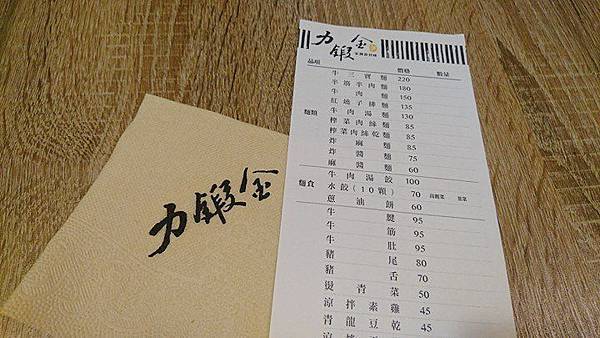 力鍛金
品項 價格 數量
牛三寶麵 220
半筋半肉麵 180
牛肉麵 150
紅燒子排麵 135
牛肉湯麵 130
麵類
榨菜肉絲麵 85
榨菜肉絲乾麵 85
炸麻麵 85
炸醬麵 75
麻醬麵 60
牛肉湯餃 100
麵食
水餃(10顆) 70 高麗菜 韭菜
蔥油餅 60
牛腱 95
牛筋 95
牛肚 95
豬尾 80
豬舌 70
燙青菜 50
涼拌素雞 45
青龍豆乾 45
力鍛金